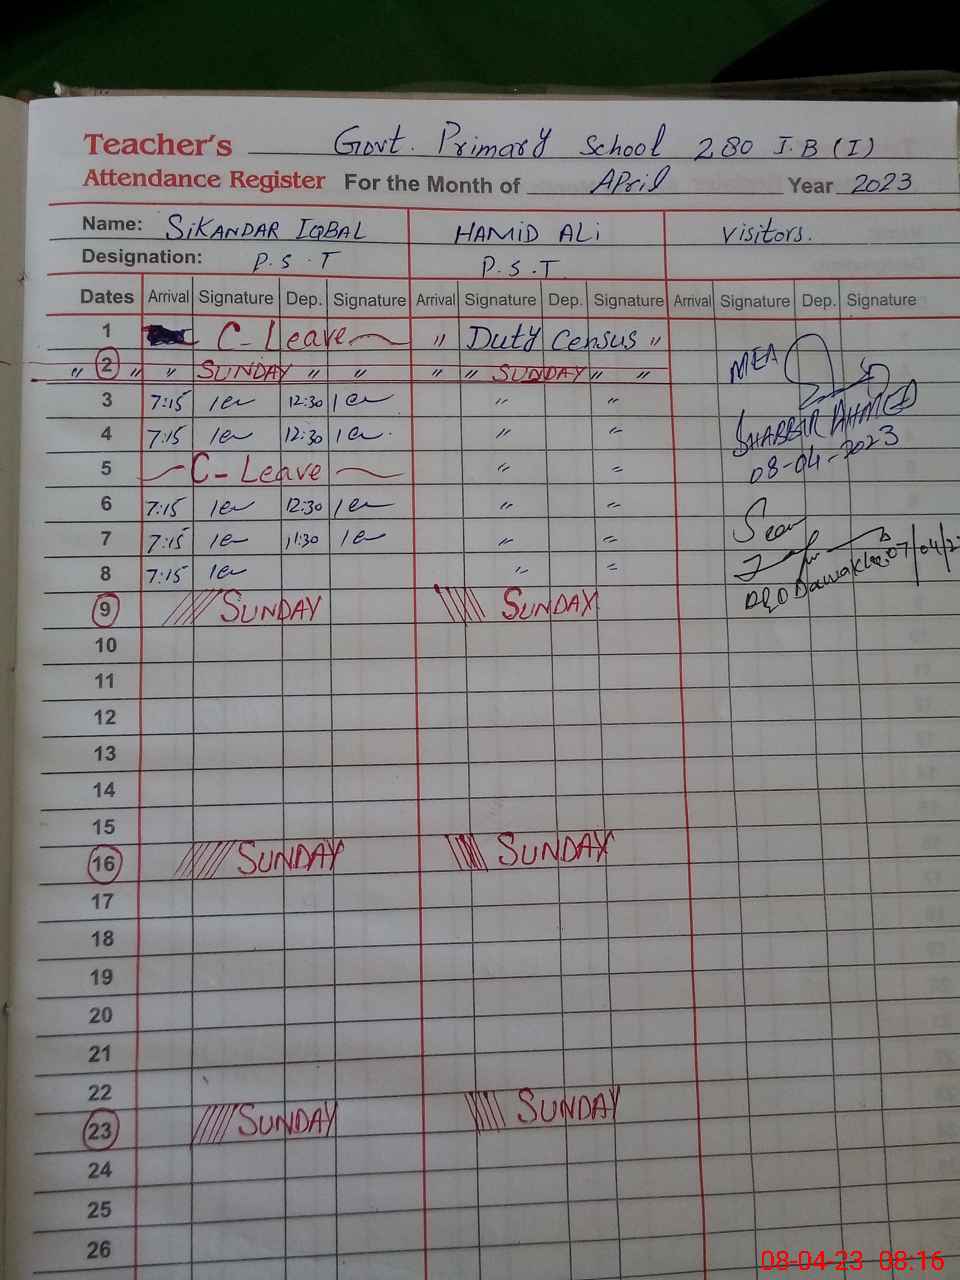 Teacher's Govt. Primary School 280 J.B (I)
Attendance Register For the Month of April Year 2023
Name: SIKANDAR IQBAL HAMID ALI Visitors.
Designation: P.S.T P.S.T
Dates Arrival Signature Dep. Signature Arrival Signature Dep. Signature Arrival Signature Dep. Signature
1 C-Leave " Duty Census "
2 " " " SUNDAY " " " " SUNDAY " "
3 7:15 12:30 " "
4 7:15 12:30 " "
5 C-Leave " "
6 7:15 12:30 " "
7 7:15 11:30 " "
8 7:15 " "
9 SUNDAY SUNDAY
10
11
12
13
14
15
16 SUNDAY SUNDAY
17
18
19
20
21
22
23 SUNDAY SUNDAY
24
25
26
MEA
SHABBIR AHMED
08-04-2023
Seen
07/04/2
08-04-23 08:16